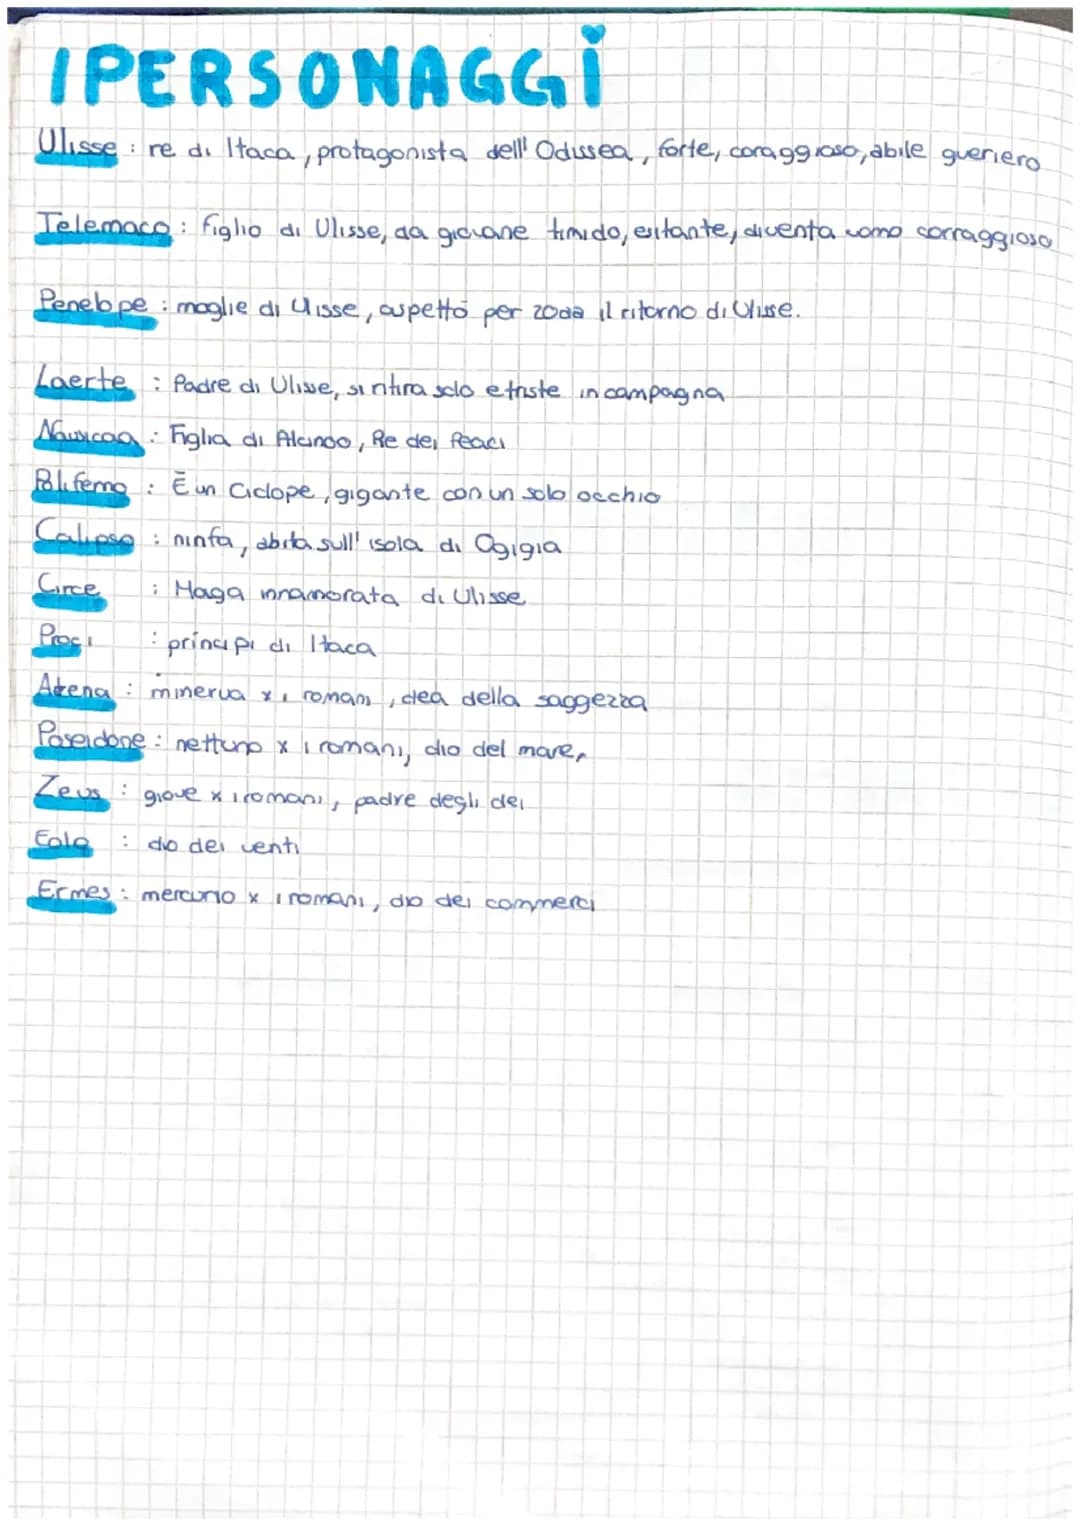 I PERSONAGGI
Ulisse : re di Itaca, protagonista dell' Odissea, forte, coraggioso, abile gueriero
Telemaco : figlio di Ulisse, da giovane timido, esitante, diventa uomo corraggioso
Penelope : moglie di Ulisse, aspettò per 20 il ritorno di Ulisse.
Laerte : Padre di Ulisse, si ritira solo e triste in campagna
Nausicaa : Figlia di Alcinoo, Re dei feaci
Polifemo : È un Ciclope, gigante con un solo occhio
Calipso : ninfa, abita sull' isola di Ogigia
Circe : Maga innamorata di Ulisse
Proci : principi di Itaca
Atena : minerva x i romani, dea della saggezza
Poseidone : nettuno x i romani, dio del mare,
Zeus : giove x i romani, padre degli dei
Eolo : dio dei venti
Ermes : mercurio x i romani, dio dei commerci